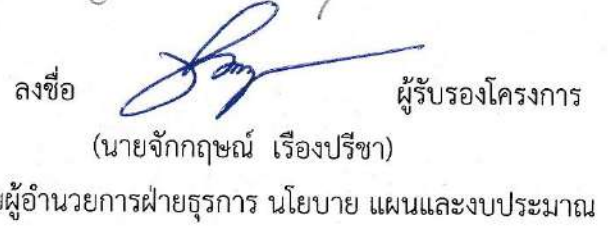 ลงชื่อ ผู้รับรองโครงการ
(นายจักกฤษณ์ เรืองปรีชา)
ผู้อำนวยการฝ่ายธุรการ นโยบาย แผนและงบประมาณ